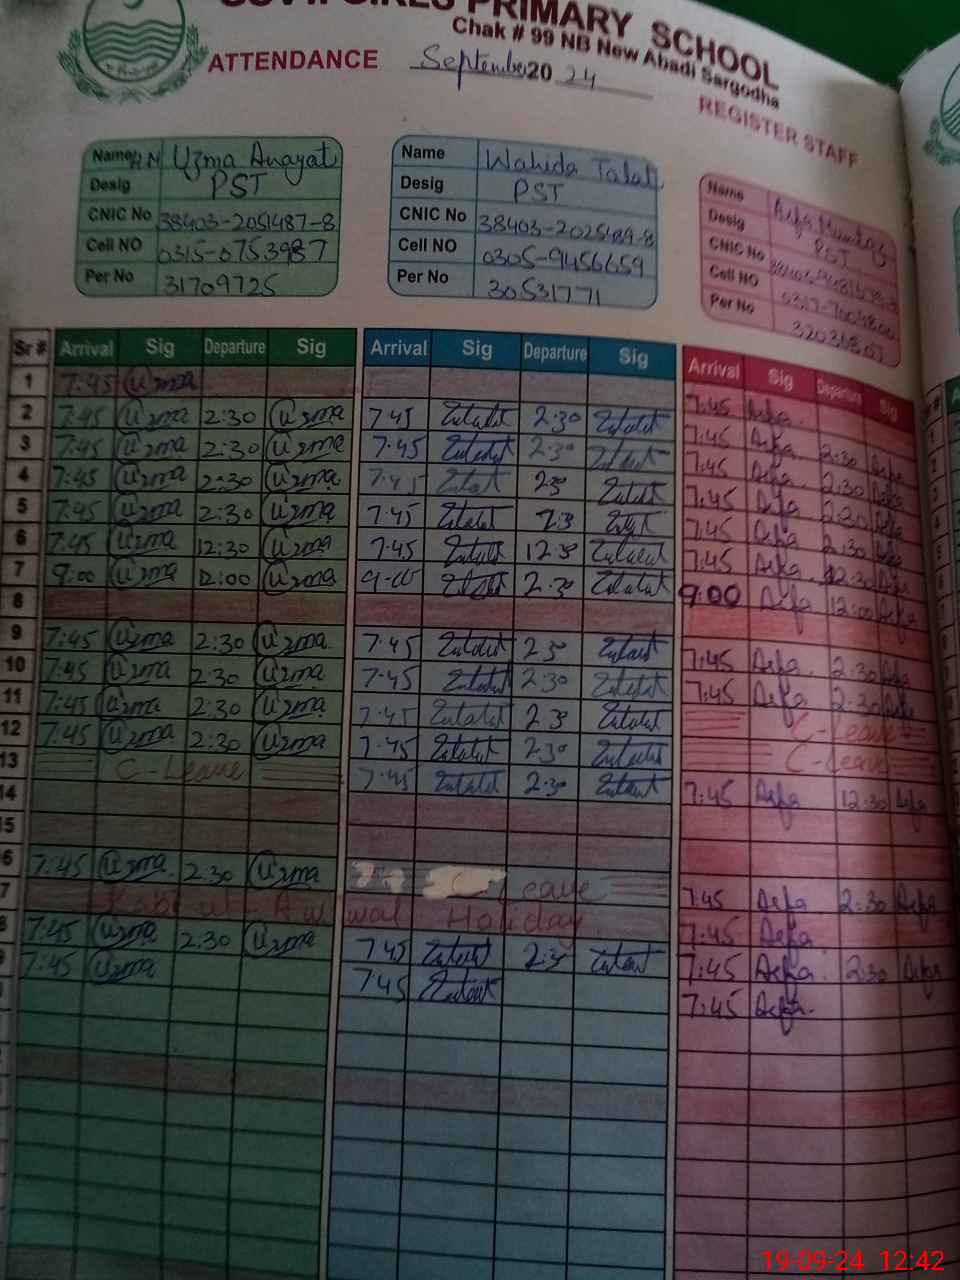 GOVT. GIRLS PRIMARY SCHOOL
Chak # 99 NB New Abadi Sargodha
ATTENDANCE September 2024
REGISTER STAFF
Name H.M Uzma Anayat
Desig PST
CNIC No 38403-2051487-8
Cell NO 0315-0753987
Per No 31709725
Name Wahida Talat
Desig PST
CNIC No 38403-2025489-8
Cell NO 0305-9456659
Per No 30531771
Name Asfa Mumtaz
Desig PST
CNIC No
Cell NO
Per No
Sr # Arrival Sig Departure Sig Arrival Sig Departure Sig Arrival Sig Departure Sig
1 7:45 Uzma
2 7:45 Uzma 2:30 Uzma 7:45 2:30 7:45 Asfa
3 7:45 Uzma 2:30 Uzma 7:45 2:30 7:45 Asfa 2:30 Asfa
4 7:45 Uzma 2:30 Uzma 7:45 2:30 7:45 Asfa 2:30 Asfa
5 7:45 Uzma 2:30 Uzma 7:45 2:30 7:45 Asfa 2:30 Asfa
6 7:45 Uzma 12:30 Uzma 7:45 12:30 7:45 Asfa 2:30 Asfa
7 9:00 Uzma 12:00 Uzma 9:00 2:30 7:45 Asfa 12:30 Asfa
8 9:00 Asfa 12:00 Asfa
9 7:45 Uzma 2:30 Uzma 7:45 2:30
10 7:45 Uzma 2:30 Uzma 7:45 2:30 7:45 Asfa 2:30 Asfa
11 7:45 Uzma 2:30 Uzma 7:45 2:30 7:45 Asfa 2:30 Asfa
12 7:45 Uzma 2:30 Uzma 7:45 2:30 C-Leave
13 C-Leave 7:45 2:30 C-Leave
14 7:45 Asfa 12:30 Asfa
15
6 7:45 Uzma 2:30 Uzma C-Leave
7 Rabi ul Awwal Holiday 7:45 Asfa 2:30 Asfa
8 7:45 Uzma 2:30 Uzma 7:45 2:30 7:45 Asfa
9 7:45 Uzma 7:45 7:45 Asfa 2:30 Asfa
7:45 Asfa
19-09-24 12:42